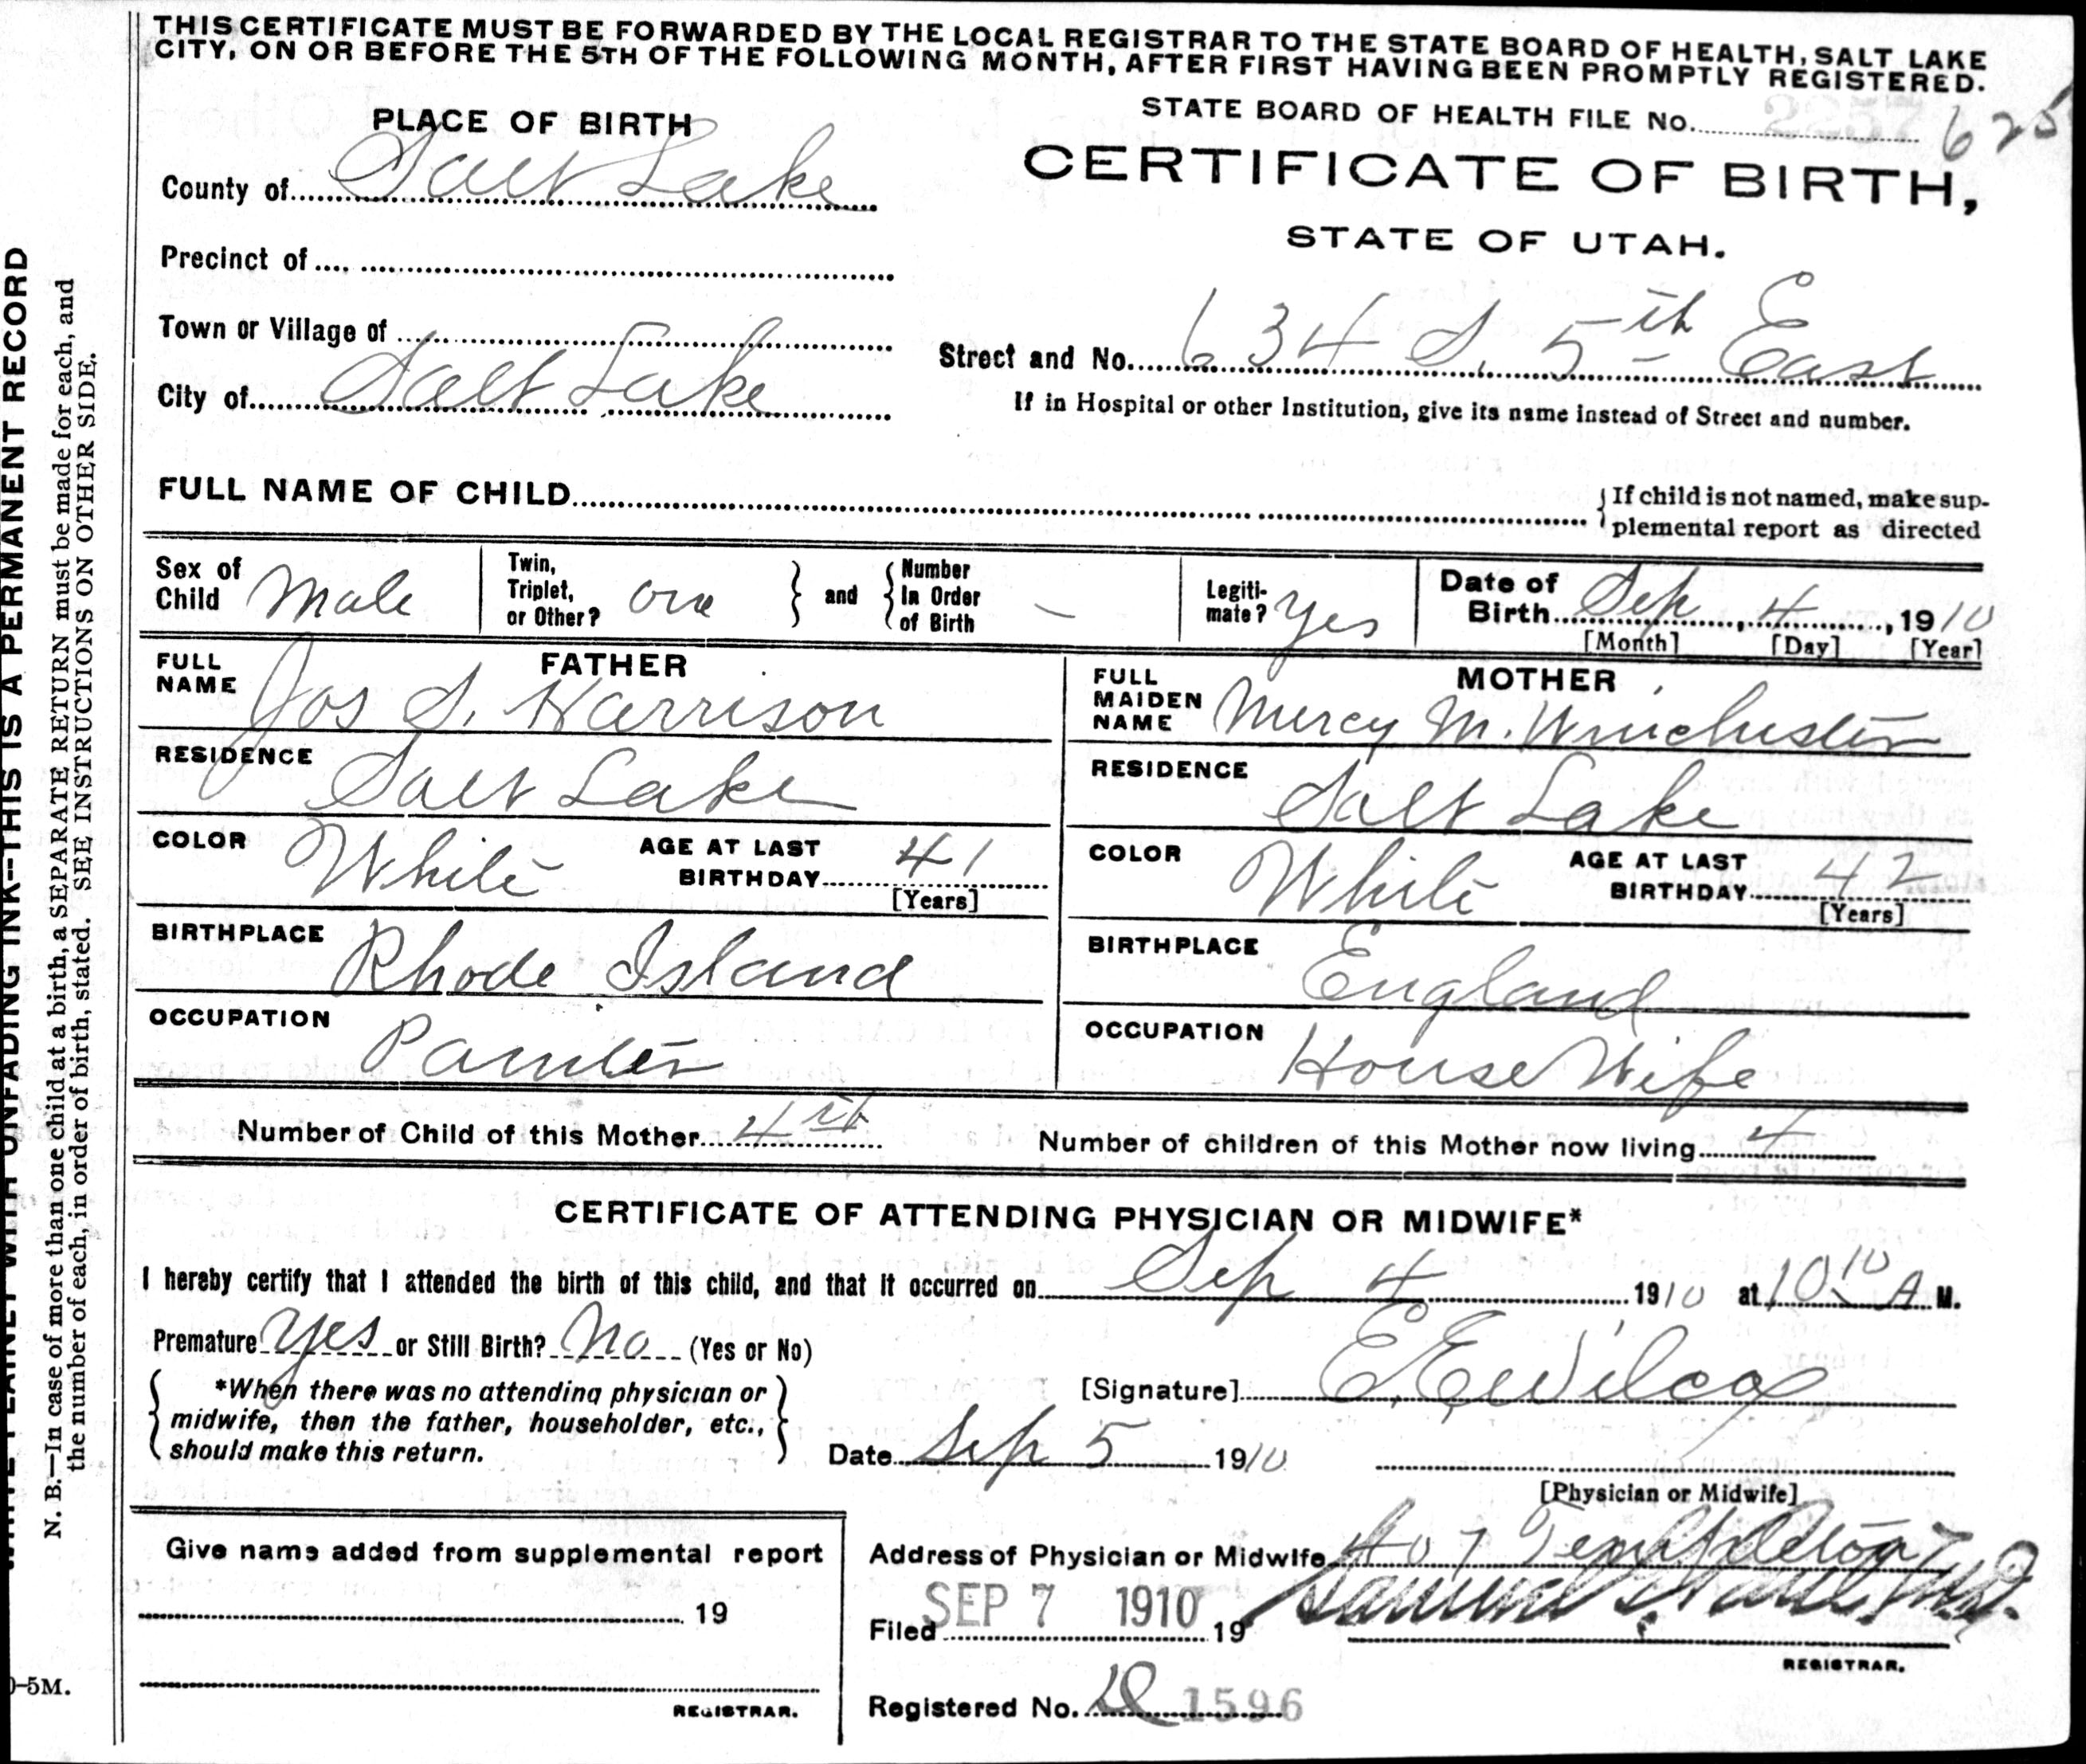 THIS CERTIFICATE MUST BE FORWARDED BY THE LOCAL REGISTRAR TO THE STATE BOARD OF HEALTH, SALT LAKE
CITY, ON OR BEFORE THE 5TH OF THE FOLLOWING MONTH, AFTER FIRST HAVING BEEN PROMPTLY REGISTERED.
STATE BOARD OF HEALTH FILE No. 625
PLACE OF BIRTH
CERTIFICATE OF BIRTH,
STATE OF UTAH.
County of Salt Lake
Precinct of
Town or Village of
City of Salt Lake
Street and No. 634 S. 5th East
If in Hospital or other Institution, give its name instead of Street and number.
FULL NAME OF CHILD
If child is not named, make sup-
plemental report as directed
Sex of Child Male
Twin, Triplet, or Other? one
and
Number In Order of Birth –
Legiti-mate? Yes
Date of Birth Sep 4, 1910
[Month] [Day] [Year]
FATHER
FULL NAME Jos S. Harrison
RESIDENCE Salt Lake
COLOR White
AGE AT LAST BIRTHDAY 41
[Years]
BIRTHPLACE Rhode Island
OCCUPATION Painter
MOTHER
FULL MAIDEN NAME Mercy M. Winchester
RESIDENCE Salt Lake
COLOR White
AGE AT LAST BIRTHDAY 42
[Years]
BIRTHPLACE England
OCCUPATION House Wife
Number of Child of this Mother 4th
Number of children of this Mother now living 4
CERTIFICATE OF ATTENDING PHYSICIAN OR MIDWIFE*
I hereby certify that I attended the birth of this child, and that it occurred on Sep 4 1910 at 10 10 A M.
Premature Yes or Still Birth? No (Yes or No)
*When there was no attending physician or
midwife, then the father, householder, etc.,
should make this return.
[Signature] E.E. Wilcox
Date Sep 5 1910
[Physician or Midwife]
Address of Physician or Midwife 407 Templeton
Filed SEP 7 1910 19
REGISTRAR.
Registered No. 1596
Give name added from supplemental report
19
REGISTRAR.
WRITE PLAINLY WITH UNFADING INK--THIS IS A PERMANENT RECORD
N. B.—In case of more than one child at a birth, a SEPARATE RETURN must be made for each, and
the number of each, in order of birth, stated. SEE INSTRUCTIONS ON OTHER SIDE.
-5M.